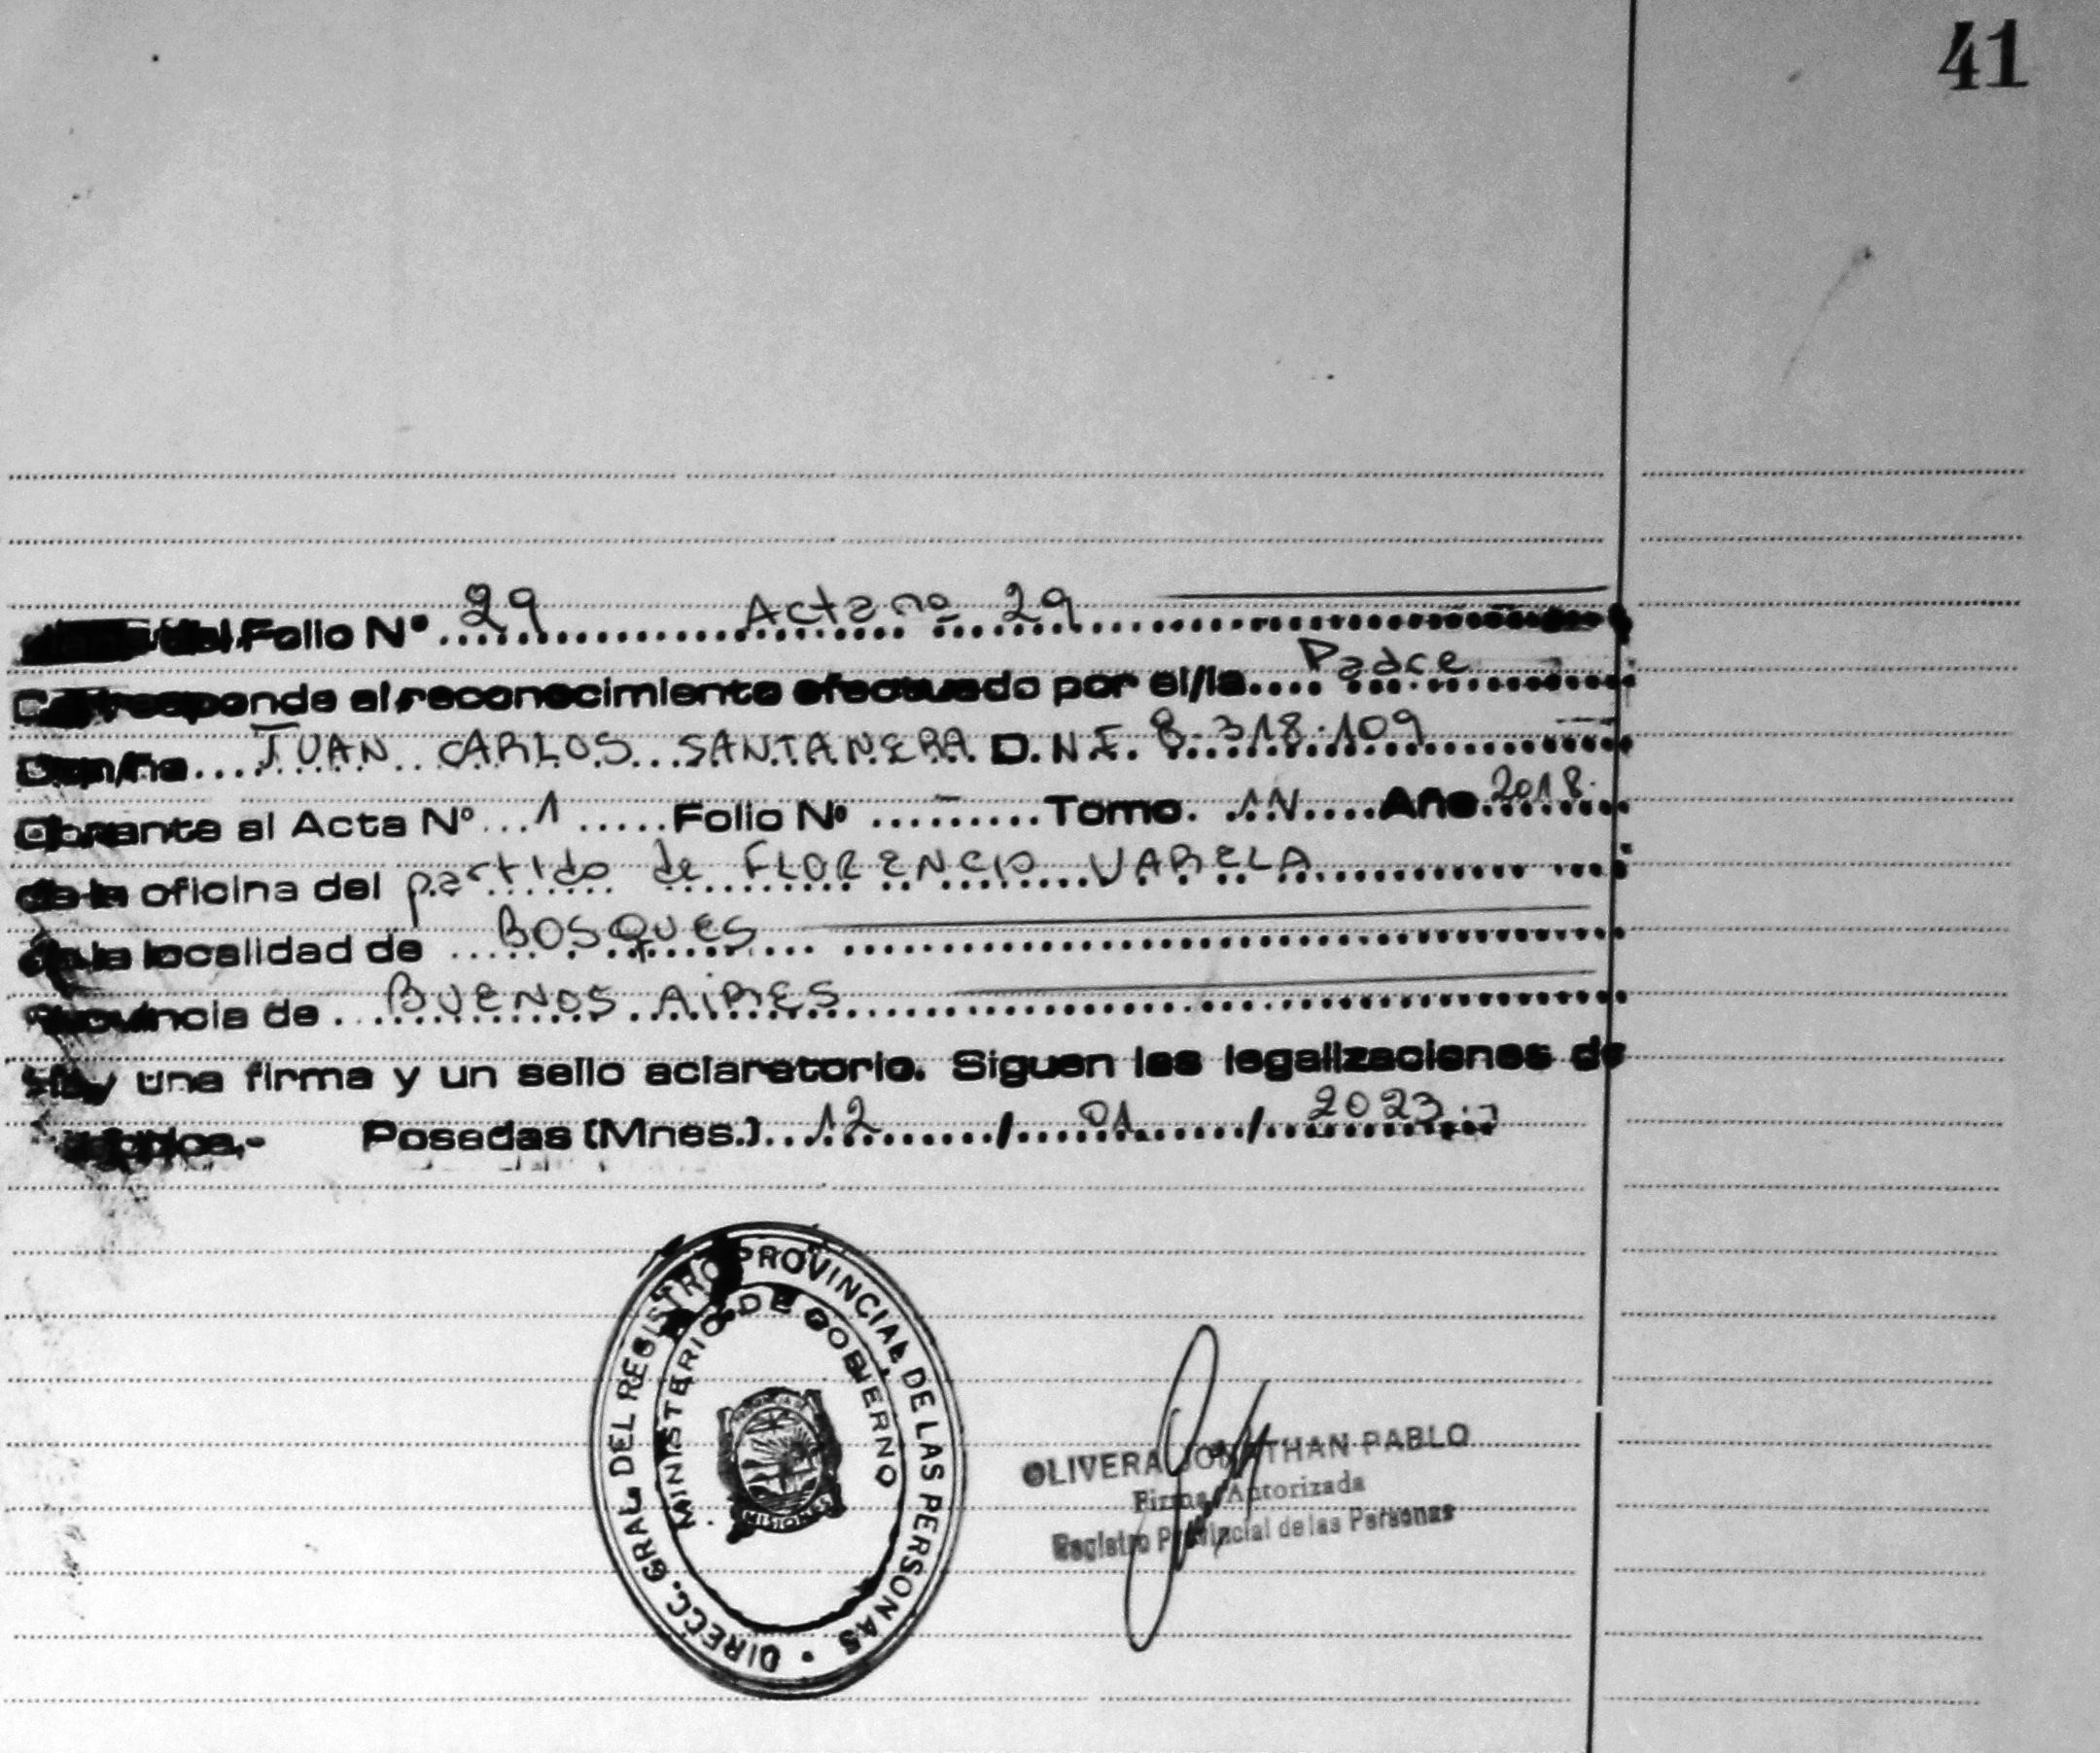 41
del Folio Nº 29 Acta nº 29
Corresponde al reconocimiento efectuado por el/la Padre
Don/ña JUAN CARLOS SANTANERA D.N.I. 8.318.109
Obrante al Acta Nº 1 Folio Nº - Tomo. 1N Año 2018.
de la oficina del partido de FLORENCIO VARELA
de la localidad de BOSQUES
Provincia de BUENOS AIRES
Hay una firma y un sello aclaratorio. Siguen las legalizaciones de
Posadas (Mnes.) 12 / 01 / 2023
DIRECC. GRAL. DEL REGISTRO PROVINCIAL DE LAS PERSONAS
MINISTERIO DE GOBIERNO
MISIONES
OLIVERA JONATHAN PABLO
Firma Autorizada
Registro Provincial de las Personas